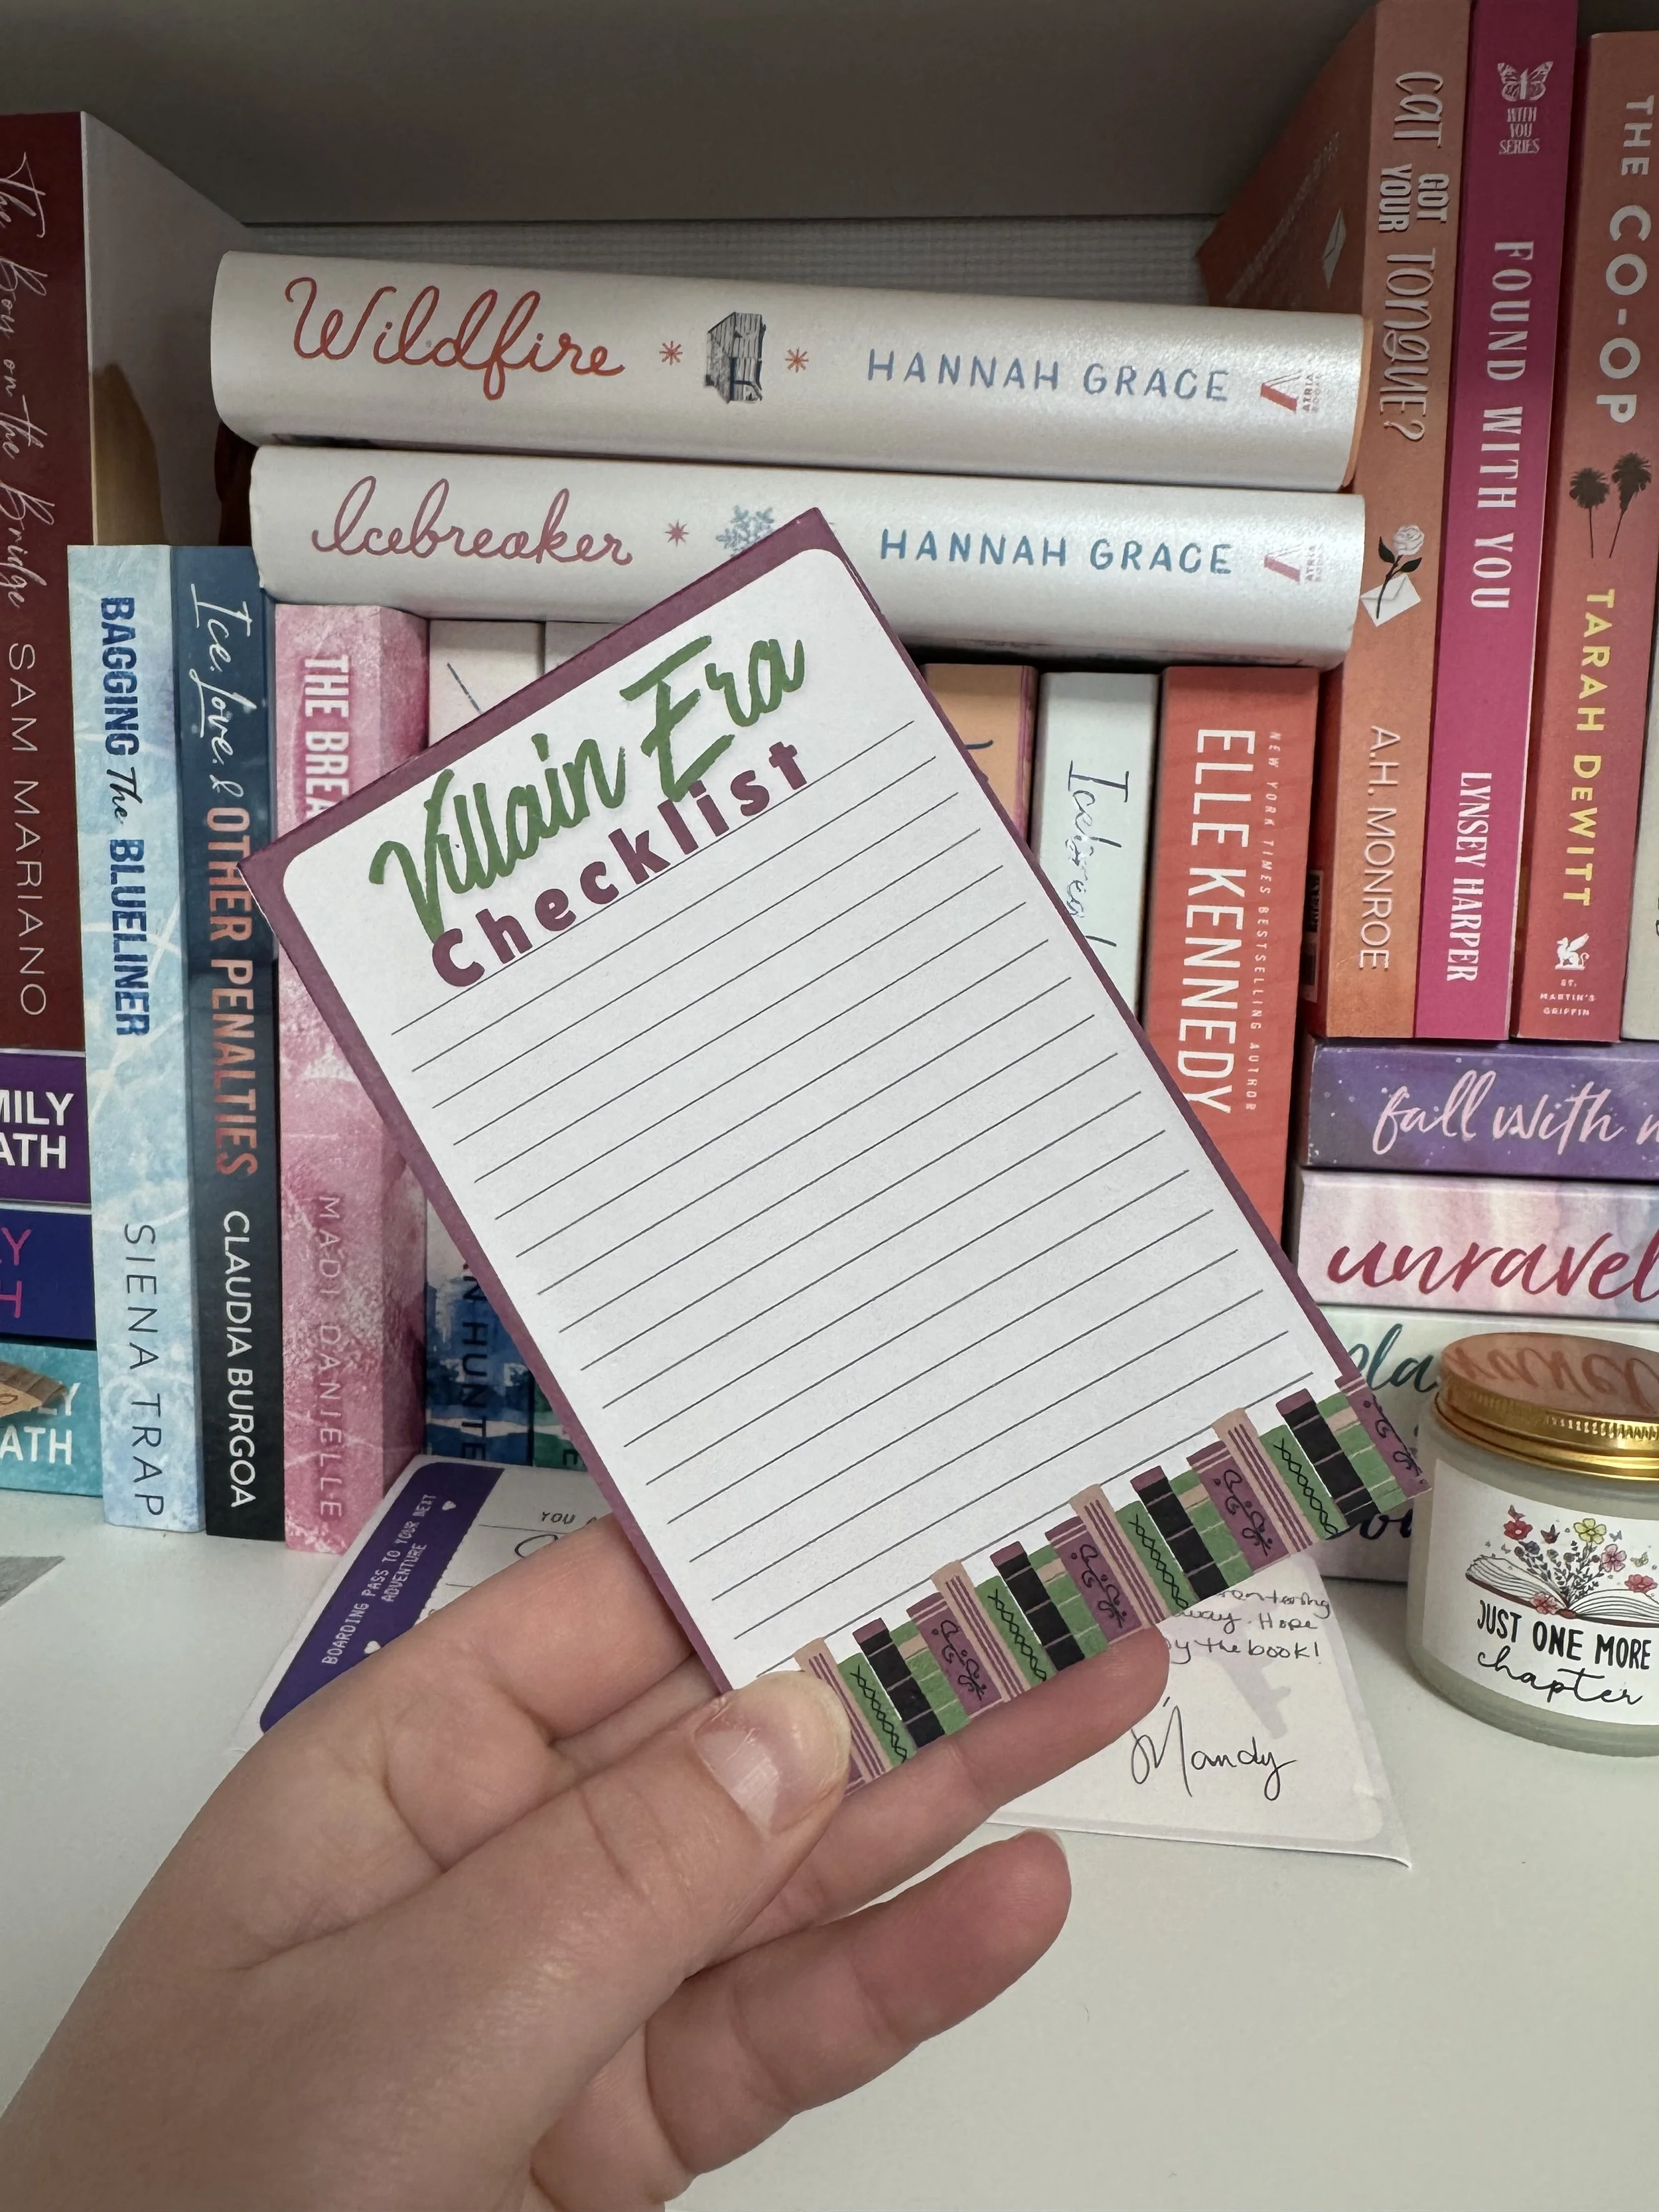 Villain Era
Checklist
Wildfire
HANNAH GRACE
ATRIA
Icebreaker
HANNAH GRACE
ATRIA
The Boy on the Bridge
SAM MARIANO
BAGGING The BLUELINER
SIENA TRAP
Ice, Love, & OTHER PENALTIES
CLAUDIA BURGOA
THE BREA
MADI DANIELLE
NEW YORK TIMES BESTSELLING AUTHOR
ELLE KENNEDY
CAT GOT YOUR TONGUE?
A.H. MONROE
1
WITH
YOU
SERIES
FOUND WITH YOU
LYNSEY HARPER
THE CO-OP
TARAH DEWITT
ST.
MARTIN'S
GRIFFIN
MILY
ATH
Y
H
LY
ATH
HUNTE
fall with m
unravel
pla
BOARDING PASS TO YOUR NEXT
ADVENTURE
YOU A
way. Hope
y the book!
Mandy
JUST ONE MORE
chapter